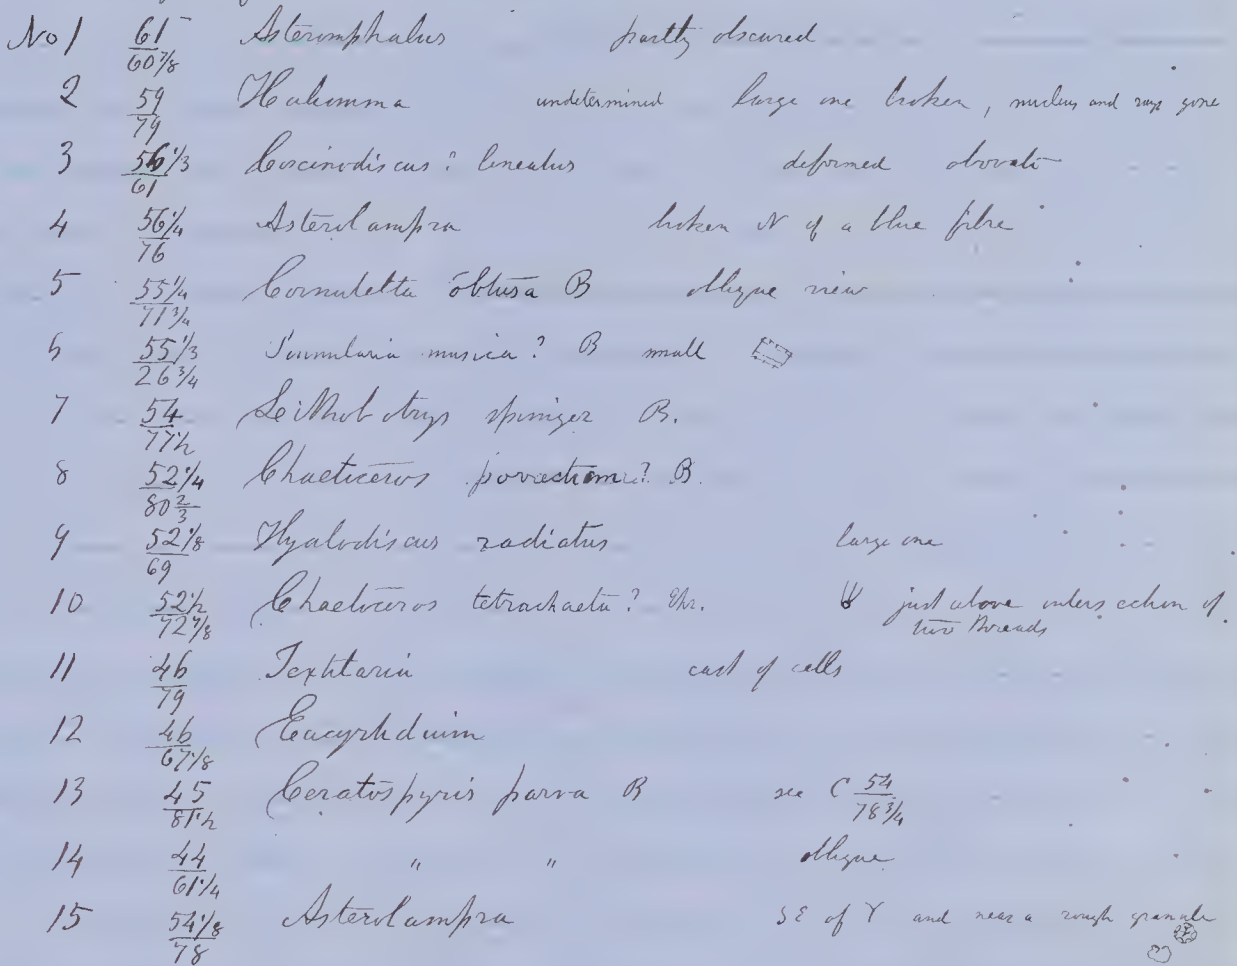 No 1 61/60 7/8 Asteromphalus partly obscured
2 59/79 Haliomma undetermined large one broken, nucleus and rays gone
3 56 1/3/61 Coscinodiscus? lineatus deformed obovate
4 56 1/4/76 Asterolampra broken N of a blue fibre
5 55 1/4/71 3/4 Cornutella obtusa B oblique view
6 55 1/3/26 3/4 musica? B small
7 54/77 1/2 Lithobotrys spiniger B.
8 52 1/4/80 2/3 Chaetoceros B.
9 52 1/8/69 Hyalodiscus radiatus large one
10 52 1/2/72 7/8 Chaetoceros tetrachaeta? Ehr. just above intersection of
two threads
11 46/79 Textilaria cast of cells
12 46/67 1/8 Eucyrtidium
13 45/81 1/2 Ceratospyris parva B see C 54/78 3/4
14 44/61 1/4 " " oblique
15 54 1/8/78 Asterolampra SE of Y and near a rough granule